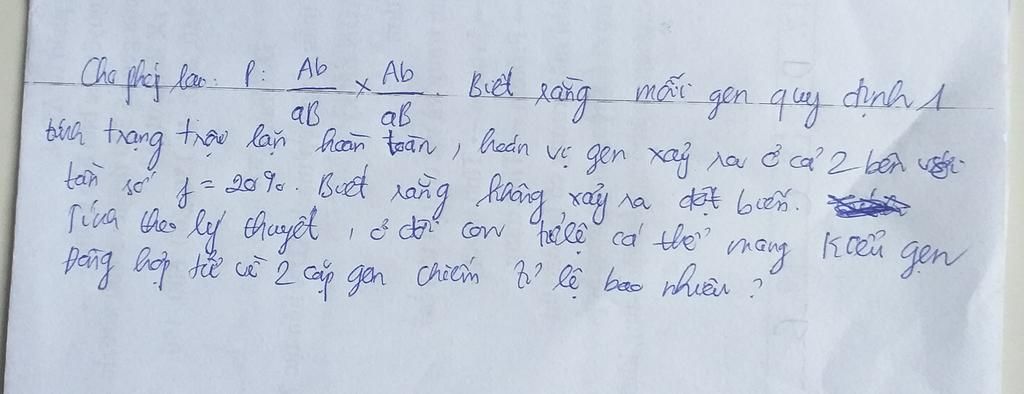 Cho phép lai: P: Ab/aB × Ab/aB. Biết rằng mỗi gen quy định 1
tính trạng trội lặn hoàn toàn, hoán vị gen xảy ra ở cả 2 bên với
tần số f = 20%. Biết rằng không xảy ra đột biến.
Tính theo lý thuyết, ở đời con tỉ lệ cá thể mang kiểu gen
Đồng hợp tử về 2 cặp gen chiếm tỉ lệ bao nhiêu?